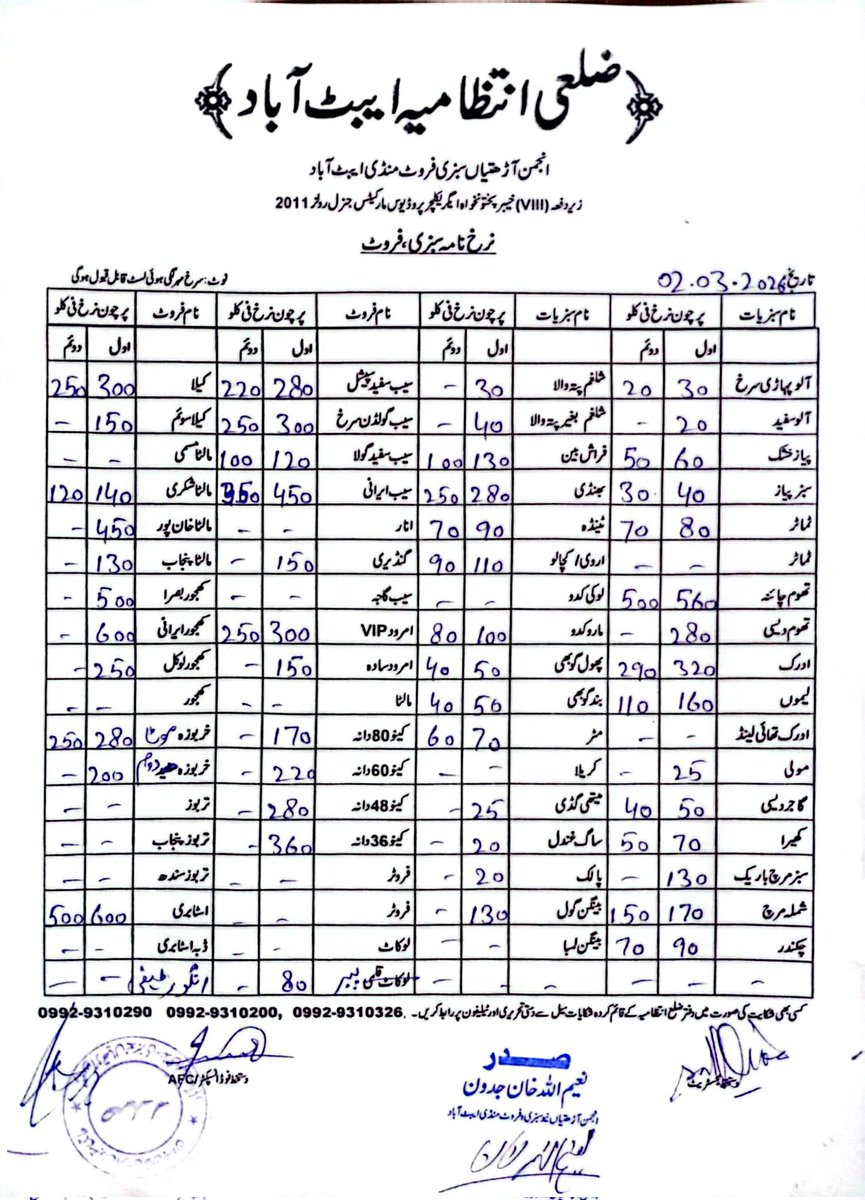 ضلعی انتظامیہ ایبٹ آباد
انجمن آڑھتیاں سبزی فروٹ منڈی ایبٹ آباد
زیر دفعہ (VIII) خیبر پختونخواہ ایگریکلچر پروڈیوس مارکیٹس جنرل رولز 2011
نرخ نامہ سبزی، فروٹ
تاریخ 02.03.2026 نوٹ: سرخ مہر لگی ہوئی لسٹ قابل قبول ہوگی
نام سبزیات پرچون نرخ فی کلو نام سبزیات پرچون نرخ فی کلو نام فروٹ پرچون نرخ فی کلو نام فروٹ پرچون نرخ فی کلو
اول دوئم اول دوئم اول دوئم اول دوئم
آلو پہاڑی سرخ 30 20 شلغم پتہ والا 30 - سیب سفید سپیشل 280 220 کیلا 300 250
آلو سفید 20 - شلغم بغیر پتہ والا 40 - سیب گولڈن سرخ 300 250 کیلا سوئم 150 -
پیاز خشک 60 50 فراش بین 130 100 سیب سفید گولا 120 100 مالٹا مسمی - -
سبز پیاز 40 30 بھنڈی 280 250 سیب ایرانی 450 مالٹا شکری 140 120
ٹماٹر 80 70 ٹینڈہ 90 70 انار - - مالٹا خان پور 450 -
ٹماٹر - - اروی / کچالو 110 90 گنڈیری 150 - مالٹا پنجاب 130 -
تھوم چائنہ 560 500 لوکی کدو - - سیب گاجہ - - کھجور بصرا 500 -
تھوم دیسی 280 - مارو کدو 100 80 امرود VIP 300 250 کھجور ایرانی 600 -
ادرک 320 290 پھول گوبھی 50 40 امرود سادہ 150 - کھجور لوکل 250 -
لیموں 160 110 بند گوبھی 50 40 مالٹا - - کھجور - -
ادرک تھائی لینڈ - - مٹر 70 60 کینو 80 دانہ 170 - خربوزہ 280 250
مولی 25 - کریلا - - کینو 60 دانہ 220 - خربوزہ 200 -
گاجر دیسی 50 40 میتھی گڈی 25 - کینو 48 دانہ 280 - تربوز - -
کھیرا 70 50 ساگ غندل 20 - کینو 36 دانہ 360 - تربوز پنجاب - -
سبز مرچ باریک 130 - پالک 20 - فروٹر - - تربوز سندھ - -
شملہ مرچ 170 150 بینگن گول 130 - فروٹر - - اسٹابری 600 500
چکندر 90 70 بینگن لمبا - - لوکاٹ - - ڈبہ اسٹابری - -
- - - - - - لوکاٹ قلمی 80 - انگور - -
کسی بھی شکایت کی صورت میں دفتر ضلع انتظامیہ کے قائم کردہ شکایات سیل سے دستی تحریری اور ٹیلیفون پر رابطہ کریں۔ 0992-9310326, 0992-9310200 0992-9310290
دستخط مجسٹریٹ
دستخط فوڈ انسپکٹر/AFC
صدر
نعیم اللہ خان جدون
انجمن آڑھتیاں سبزی و فروٹ منڈی ایبٹ آباد